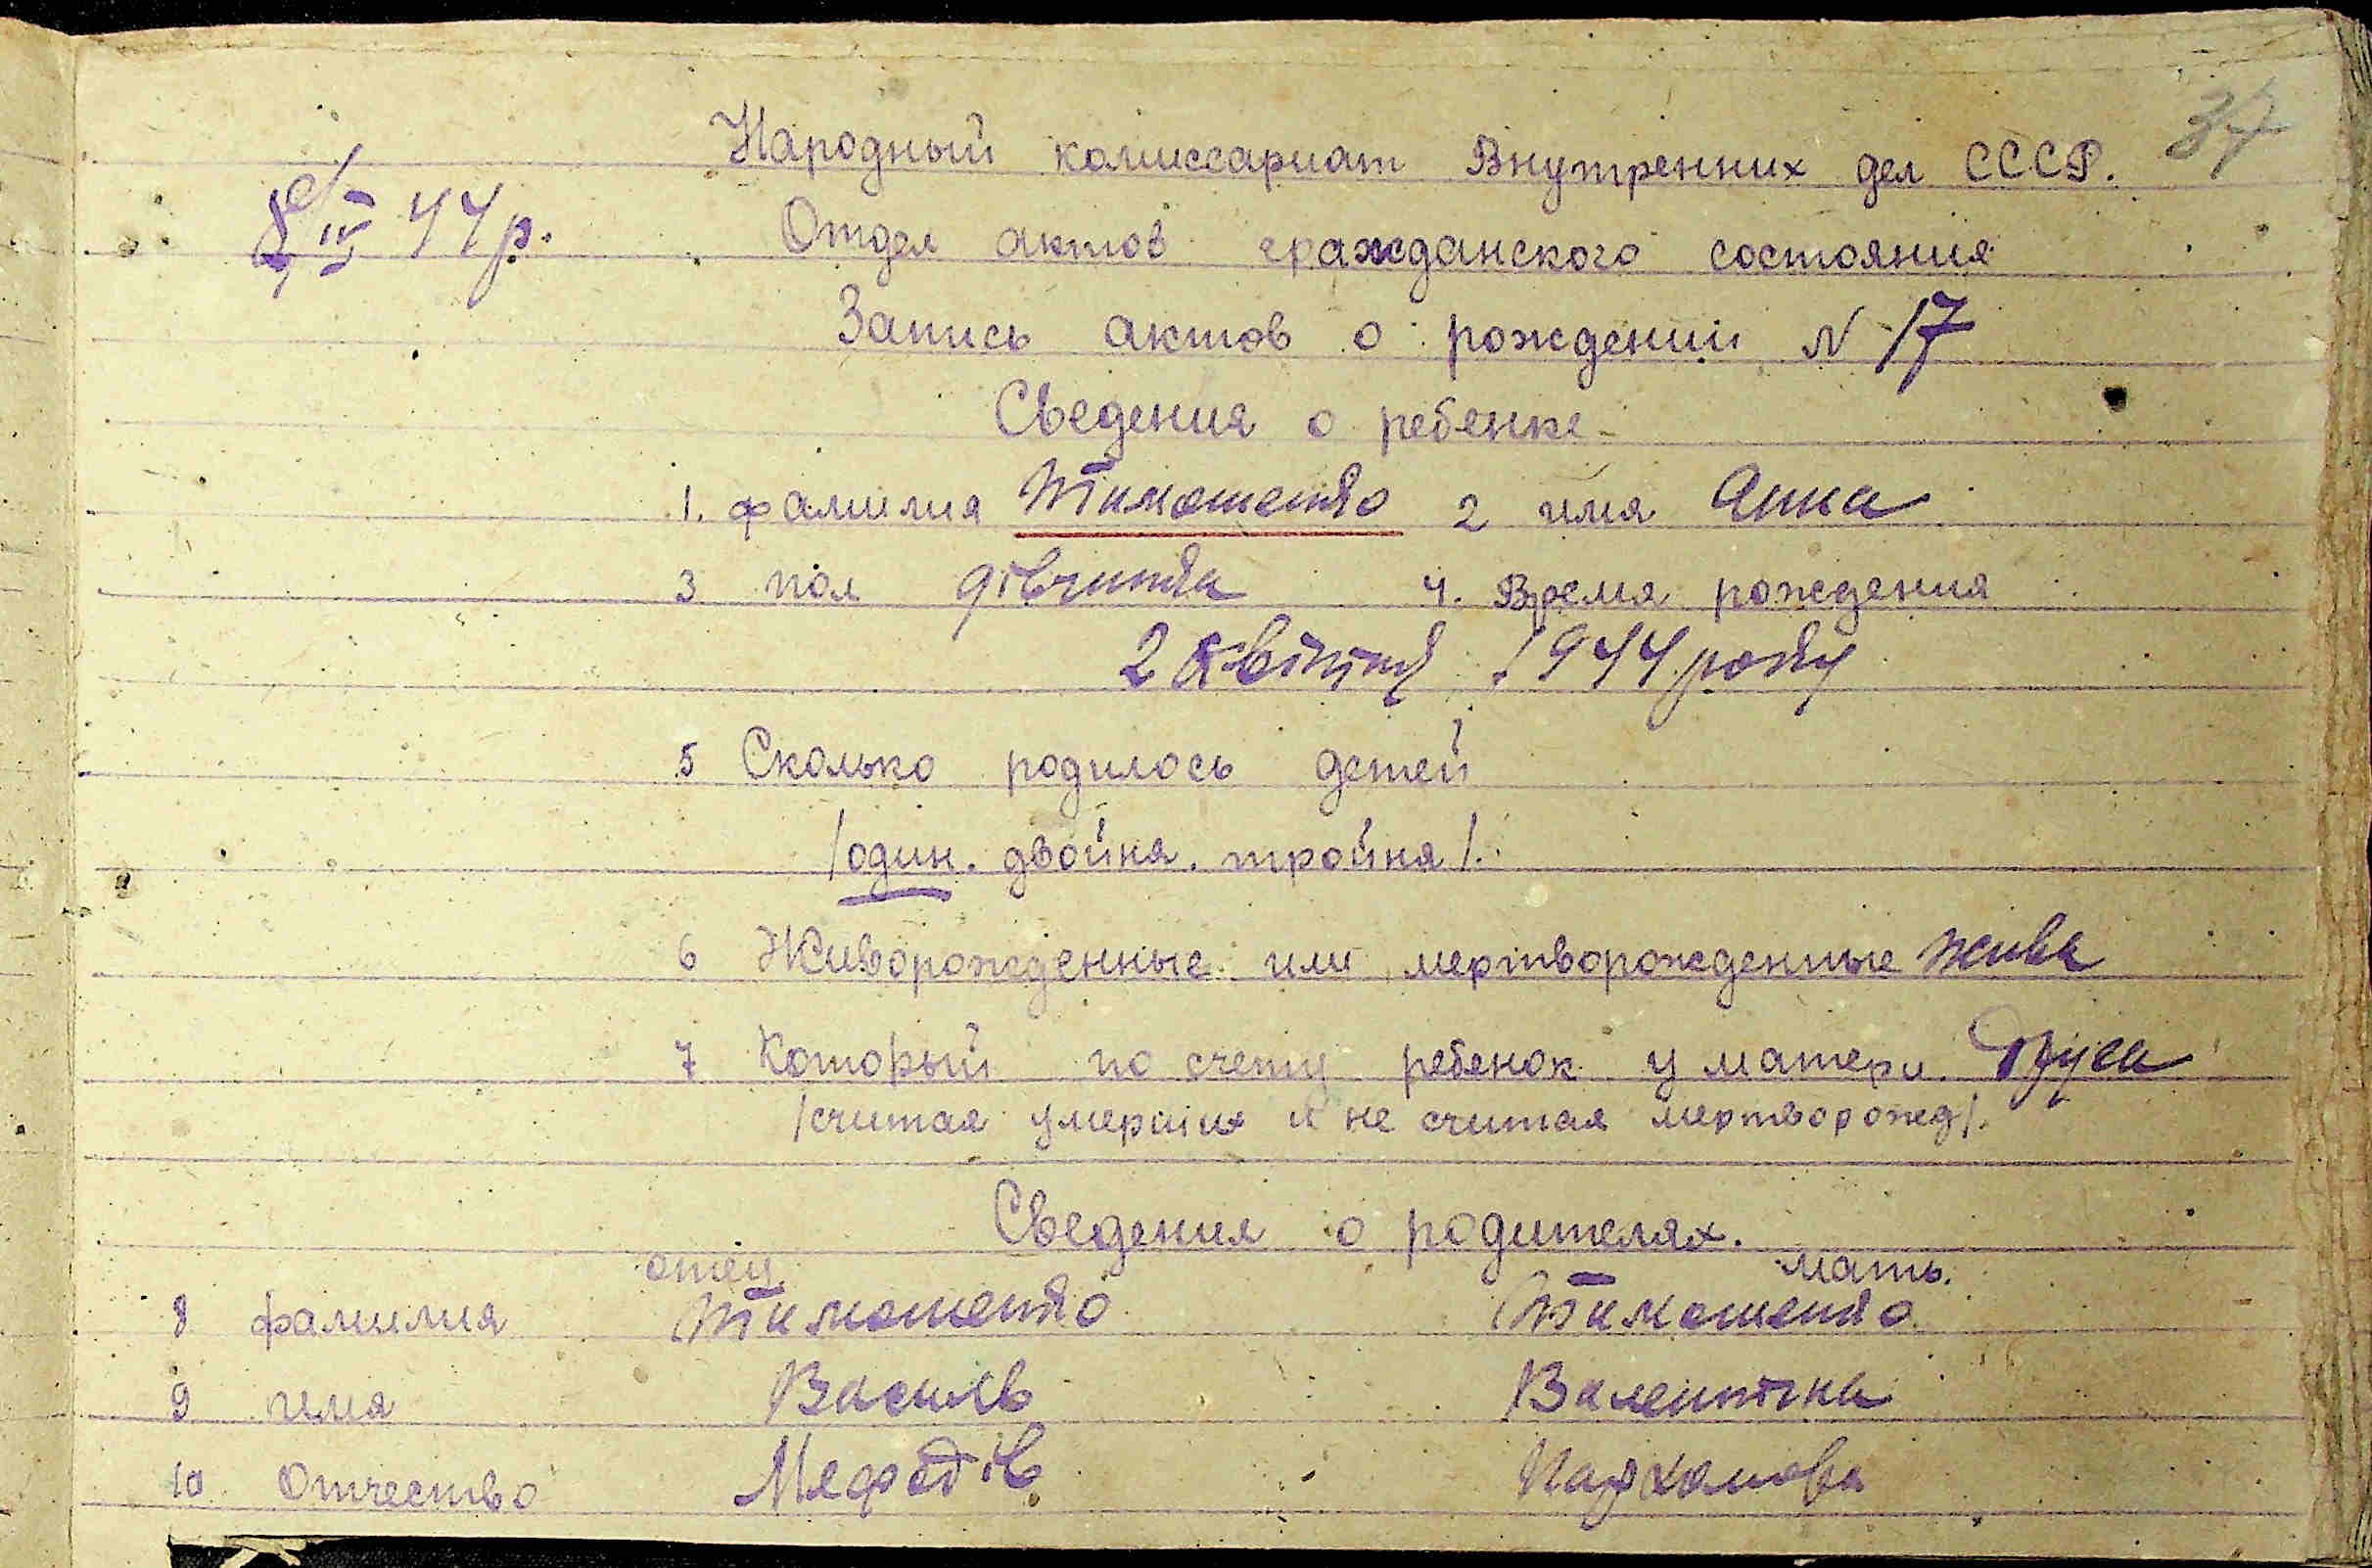 37
Народный комиссариат Внутренних дел СССР.
IV 44 р.
Отдел актов гражданского состояния
Запись актов о рождении N 17
Сведения о ребенке
1. фамилия Тимошенко 2 имя Анна
3 пол дівчинка 4. Время рождения
2 квітня 1944 року
5 Сколько родилось детей
/один. двойня. тройня/.
6 Живорожденные или мертворожденные жива
7 Который по счету ребенок у матери Друга
/считая умерших и не считая мертворожд/.
Сведения о родителях.
отец мать.
8 фамилия Тимошенко Тимошенко
9 имя Василь Валентина
10 Отчество Мефодів Пархомова